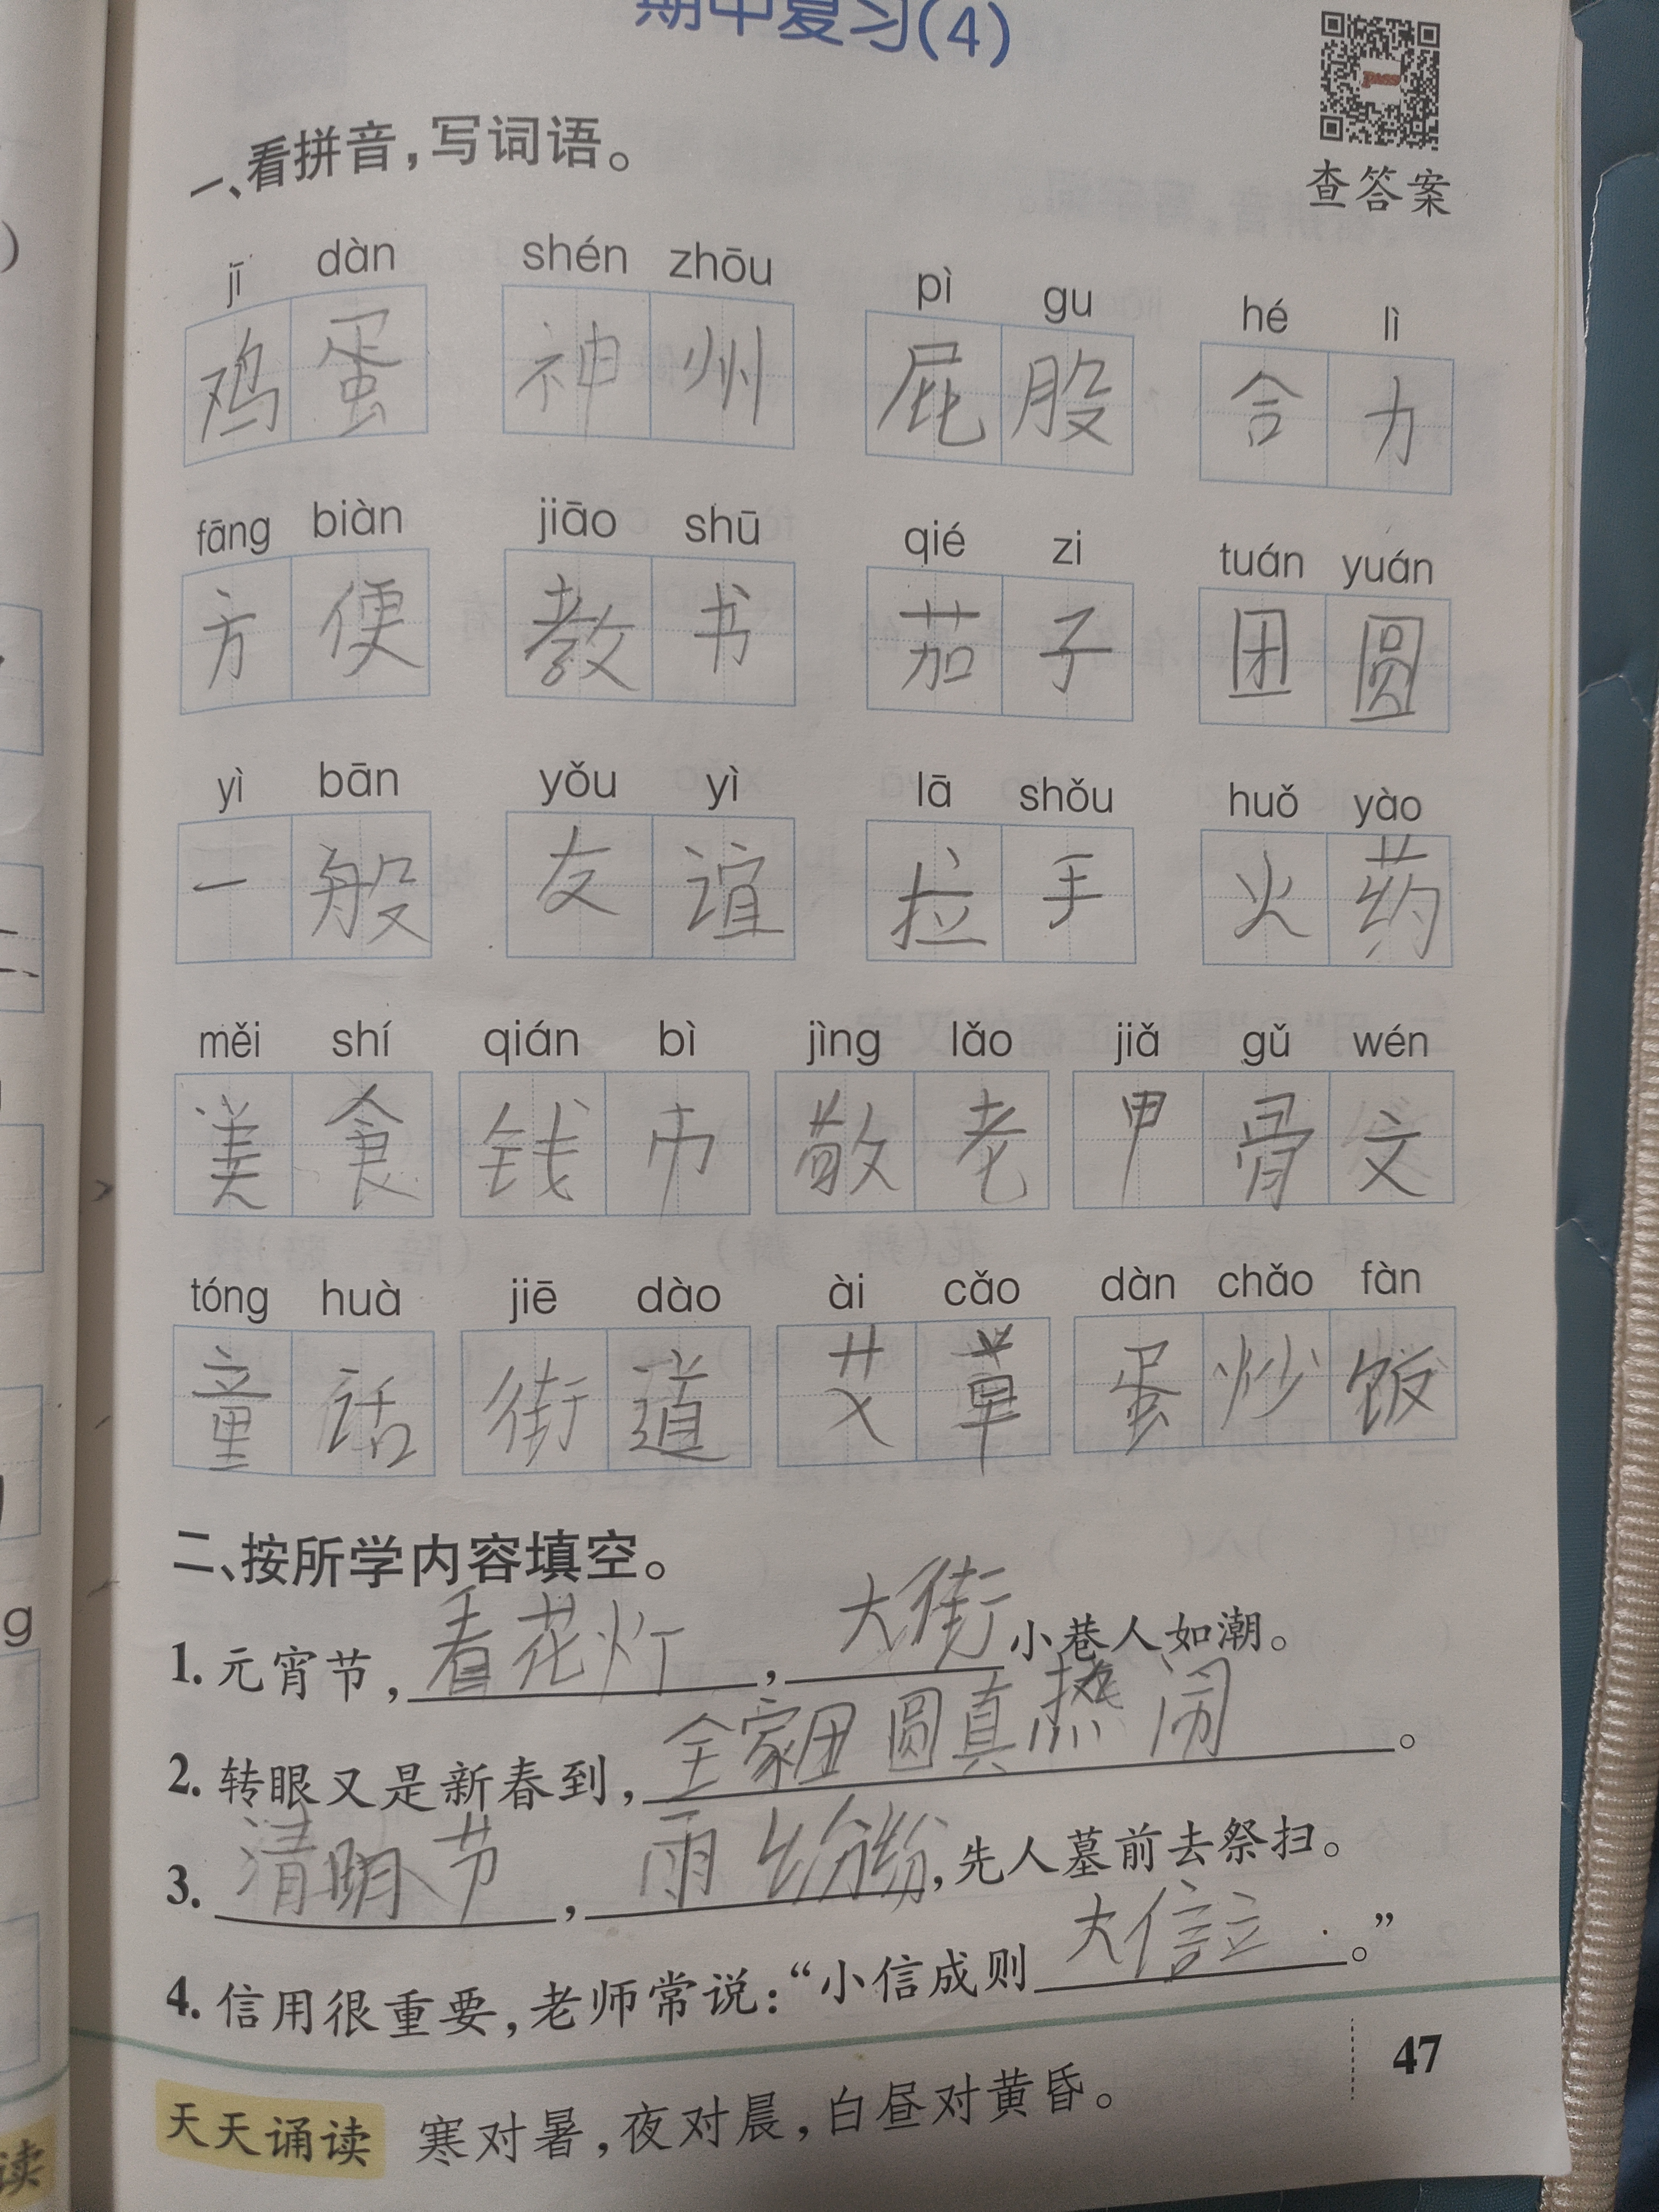 期中复习(4)
查答案
一、看拼音,写词语。
jī dàn shén zhōu pì gu hé lì
鸡蛋 神州 屁股 合力
fāng biàn jiāo shū qié zi tuán yuán
方便 教书 茄子 团圆
yì bān yǒu yì lā shǒu huǒ yào
一般 友谊 拉手 火药
měi shí qián bì jìng lǎo jiǎ gǔ wén
美食 钱币 敬老 甲骨文
tóng huà jiē dào ài cǎo dàn chǎo fàn
童话 街道 艾草 蛋炒饭
二、按所学内容填空。
1. 元宵节,看花灯,大街小巷人如潮。
2. 转眼又是新春到,全家团圆真热闹。
3. 清明节,雨纷纷,先人墓前去祭扫。
4. 信用很重要,老师常说:“小信成则大信立。”
47
天天诵读 寒对暑,夜对晨,白昼对黄昏。